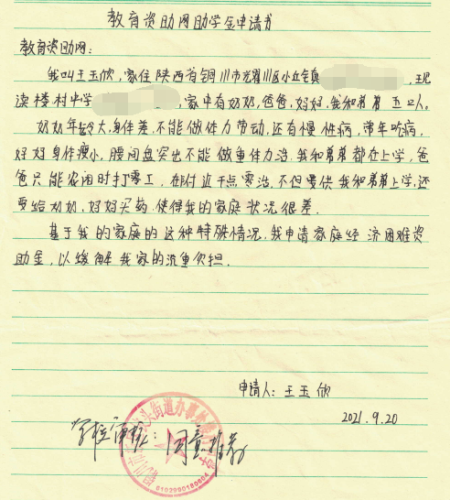 教育资助网助学金申请书
教育资助网：
我叫王玉欣，家住陕西省铜川市耀州区小丘镇
读楼村中学，家中有奶奶，爸爸，妈妈，我和弟弟五口人。
奶奶年龄大，身体差，不能做体力劳动，还有慢性病，常年吃病，
妈妈身体瘦小，腰间盘突出不能做重体力活，我和弟弟都在上学，爸
爸只能农闲时打零工，在附近干点零活，不但要供我和弟弟上学，还
要给奶奶，妈妈买药，使得我的家庭状况很差。
基于我的家庭的这种特殊情况，我申请家庭经济困难资
助金，以缓解我家的沉重负担。
申请人：王玉欣
2021.9.20
学校审核：同意推荐
街道办事